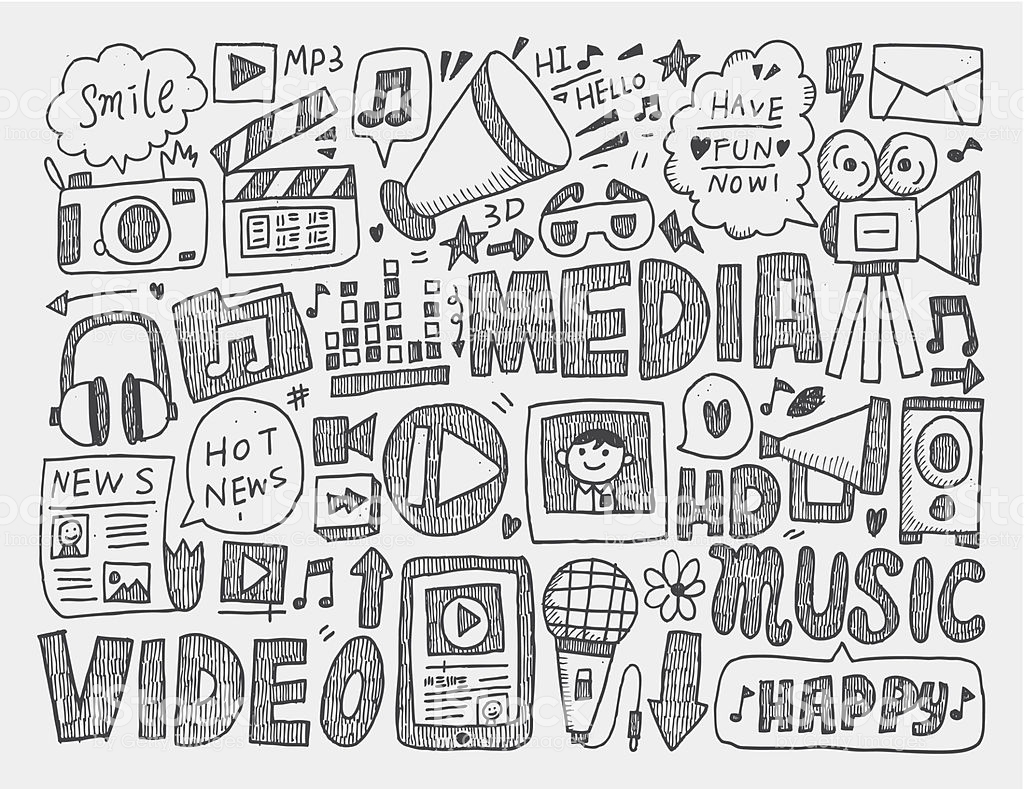 Smile
MP3
HI
HELLO
HAVE
FUN
NOW!
3D
MEDIA
#
HOT
NEWS
NEWS
HD
MUSIC
VIDEO
HAPPY
iStock
by Getty Images